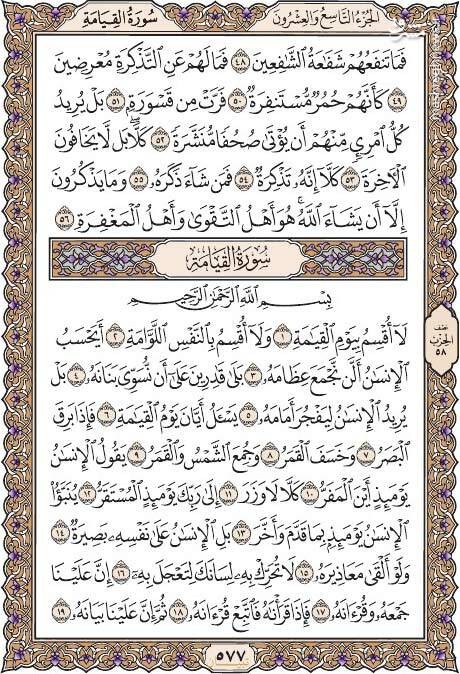 الجُزْءُ التَّاسِعُ وَالعِشْرُونَ سُورَةُ القِيَامَةِ
فَمَا تَنفَعُهُمْ شَفَٰعَةُ ٱلشَّٰفِعِينَ ٤٨ فَمَا لَهُمْ عَنِ ٱلتَّذْكِرَةِ مُعْرِضِينَ
٤٩ كَأَنَّهُمْ حُمُرٌ مُّسْتَنفِرَةٌ ٥٠ فَرَّتْ مِن قَسْوَرَةٍ ٥١ بَلْ يُرِيدُ
كُلُّ ٱمْرِئٍ مِّنْهُمْ أَن يُؤْتَىٰ صُحُفًا مُّنَشَّرَةً ٥٢ كَلَّا ۖ بَل لَّا يَخَافُونَ
ٱلْءَاخِرَةَ ٥٣ كَلَّآ إِنَّهُۥ تَذْكِرَةٌ ٥٤ فَمَن شَآءَ ذَكَرَهُۥ ٥٥ وَمَا يَذْكُرُونَ
إِلَّآ أَن يَشَآءَ ٱللَّهُ ۚ هُوَ أَهْلُ ٱلتَّقْوَىٰ وَأَهْلُ ٱلْمَغْفِرَةِ ٥٦
سُورَةُ القِيَامَةِ
بِسْمِ ٱللَّهِ ٱلرَّحْمَٰنِ ٱلرَّحِيمِ
لَآ أُقْسِمُ بِيَوْمِ ٱلْقِيَٰمَةِ ١ وَلَآ أُقْسِمُ بِٱلنَّفْسِ ٱللَّوَّامَةِ ٢ أَيَحْسَبُ
ٱلْإِنسَٰنُ أَلَّن نَّجْمَعَ عِظَامَهُۥ ٣ بَلَىٰ قَٰدِرِينَ عَلَىٰٓ أَن نُّسَوِّىَ بَنَانَهُۥ ٤ بَلْ
يُرِيدُ ٱلْإِنسَٰنُ لِيَفْجُرَ أَمَامَهُۥ ٥ يَسْـَٔلُ أَيَّانَ يَوْمُ ٱلْقِيَٰمَةِ ٦ فَإِذَا بَرِقَ
ٱلْبَصَرُ ٧ وَخَسَفَ ٱلْقَمَرُ ٨ وَجُمِعَ ٱلشَّمْسُ وَٱلْقَمَرُ ٩ يَقُولُ ٱلْإِنسَٰنُ
يَوْمَئِذٍ أَيْنَ ٱلْمَفَرُّ ١٠ كَلَّا لَا وَزَرَ ١١ إِلَىٰ رَبِّكَ يَوْمَئِذٍ ٱلْمُسْتَقَرُّ ١٢ يُنَبَّؤُا۟
ٱلْإِنسَٰنُ يَوْمَئِذٍۭ بِمَا قَدَّمَ وَأَخَّرَ ١٣ بَلِ ٱلْإِنسَٰنُ عَلَىٰ نَفْسِهِۦ بَصِيرَةٌ ١٤
وَلَوْ أَلْقَىٰ مَعَاذِيرَهُۥ ١٥ لَا تُحَرِّكْ بِهِۦ لِسَانَكَ لِتَعْجَلَ بِهِۦٓ ١٦ إِنَّ عَلَيْنَا
جَمْعَهُۥ وَقُرْءَانَهُۥ ١٧ فَإِذَا قَرَأْنَٰهُ فَٱتَّبِعْ قُرْءَانَهُۥ ١٨ ثُمَّ إِنَّ عَلَيْنَا بَيَانَهُۥ ١٩
الحِزْب
٥٨
٥٧٧